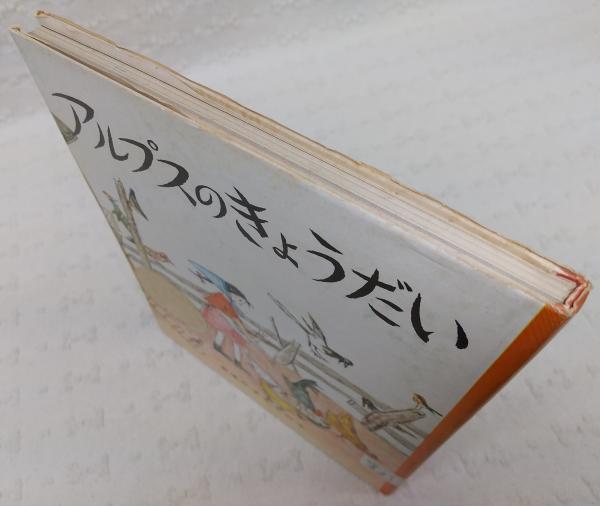 アルプスのきょうだい